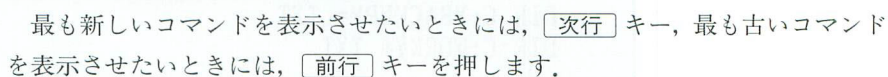 最も新しいコマンドを表示させたいときには，次行キー，最も古いコマンド
を表示させたいときには，前行キーを押します．